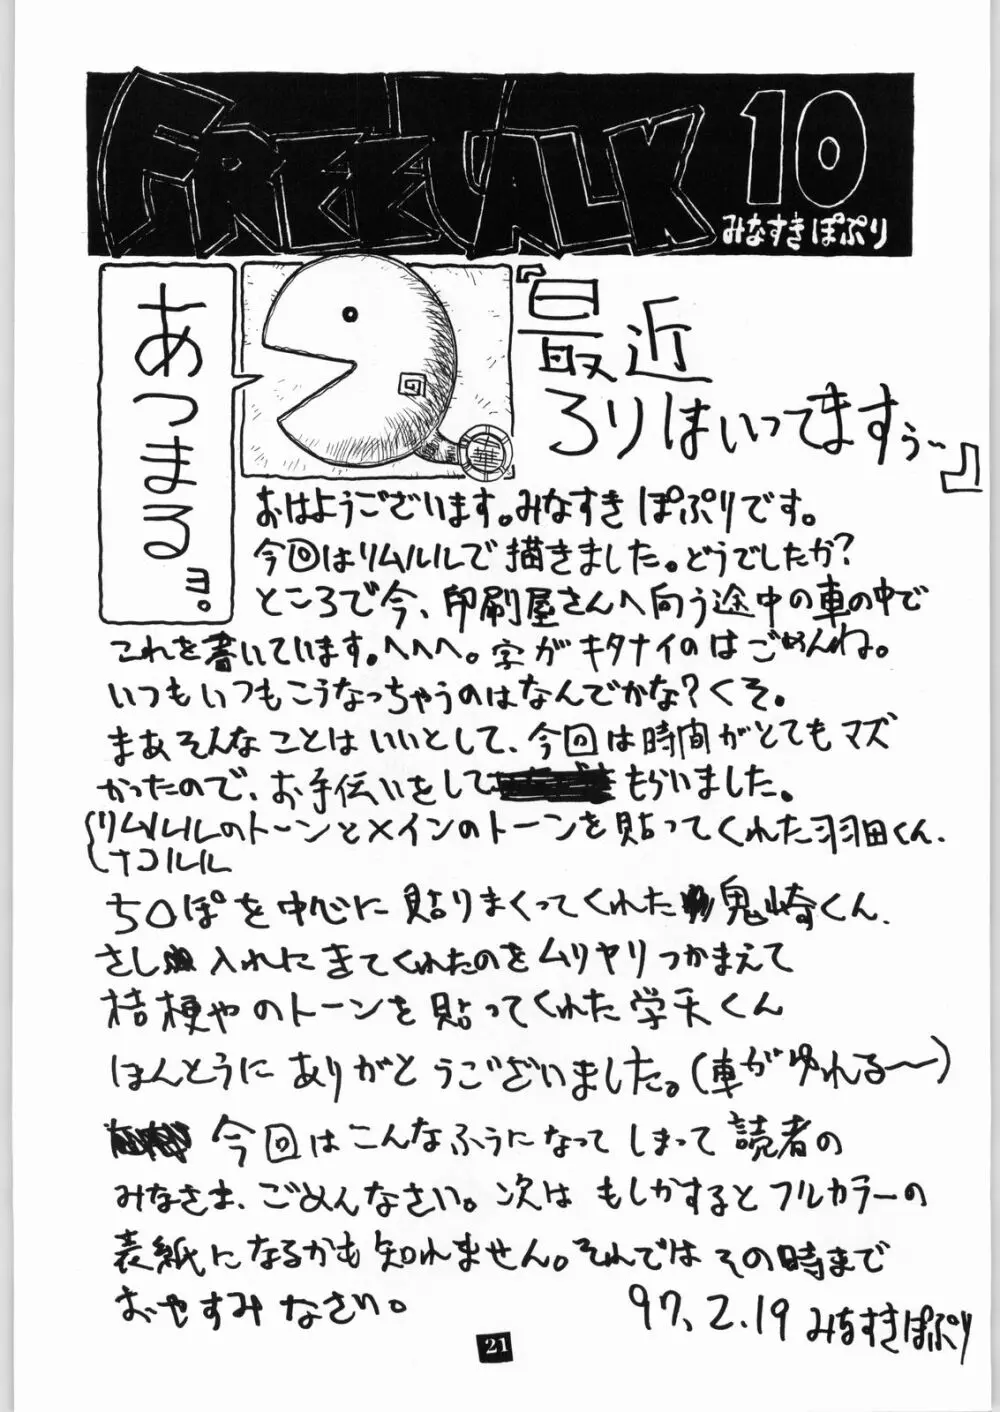 FREE TALK 10
みなすきぽぷり
あつまるョ。
回
華
『最近
ろりはいってますぅ〜』
おはようございます。みなすきぽぷりです。
今回はリムルルで描きました。どうでしたか?
ところで今、印刷屋さんへ向う途中の車の中で
これを書いています。へへへ。字がキタナイのはごめんね。
いつもいつもこうなっちゃうのはなんでかな?くそ。
まあそんなことはいいとして、今回は時間がとてもマズ
かったので、お手伝いをしてもらいました。
リムルルのトーンとメインのトーンを貼ってくれた羽田くん、
ナコルル
ち○ぽを中心に貼りまくってくれた鬼崎くん、
さし入れにきてくれたのをムリヤリつかまえて
桔梗やのトーンを貼ってくれた学天くん
ほんとうにありがとうございました。(車がゆれる〜)
今回はこんなふうになってしまって読者の
みなさま、ごめんなさい。次はもしかするとフルカラーの
表紙になるかも知れません。それではその時まで
おやすみなさい。
97、2.19 みなすきぽぷり
21